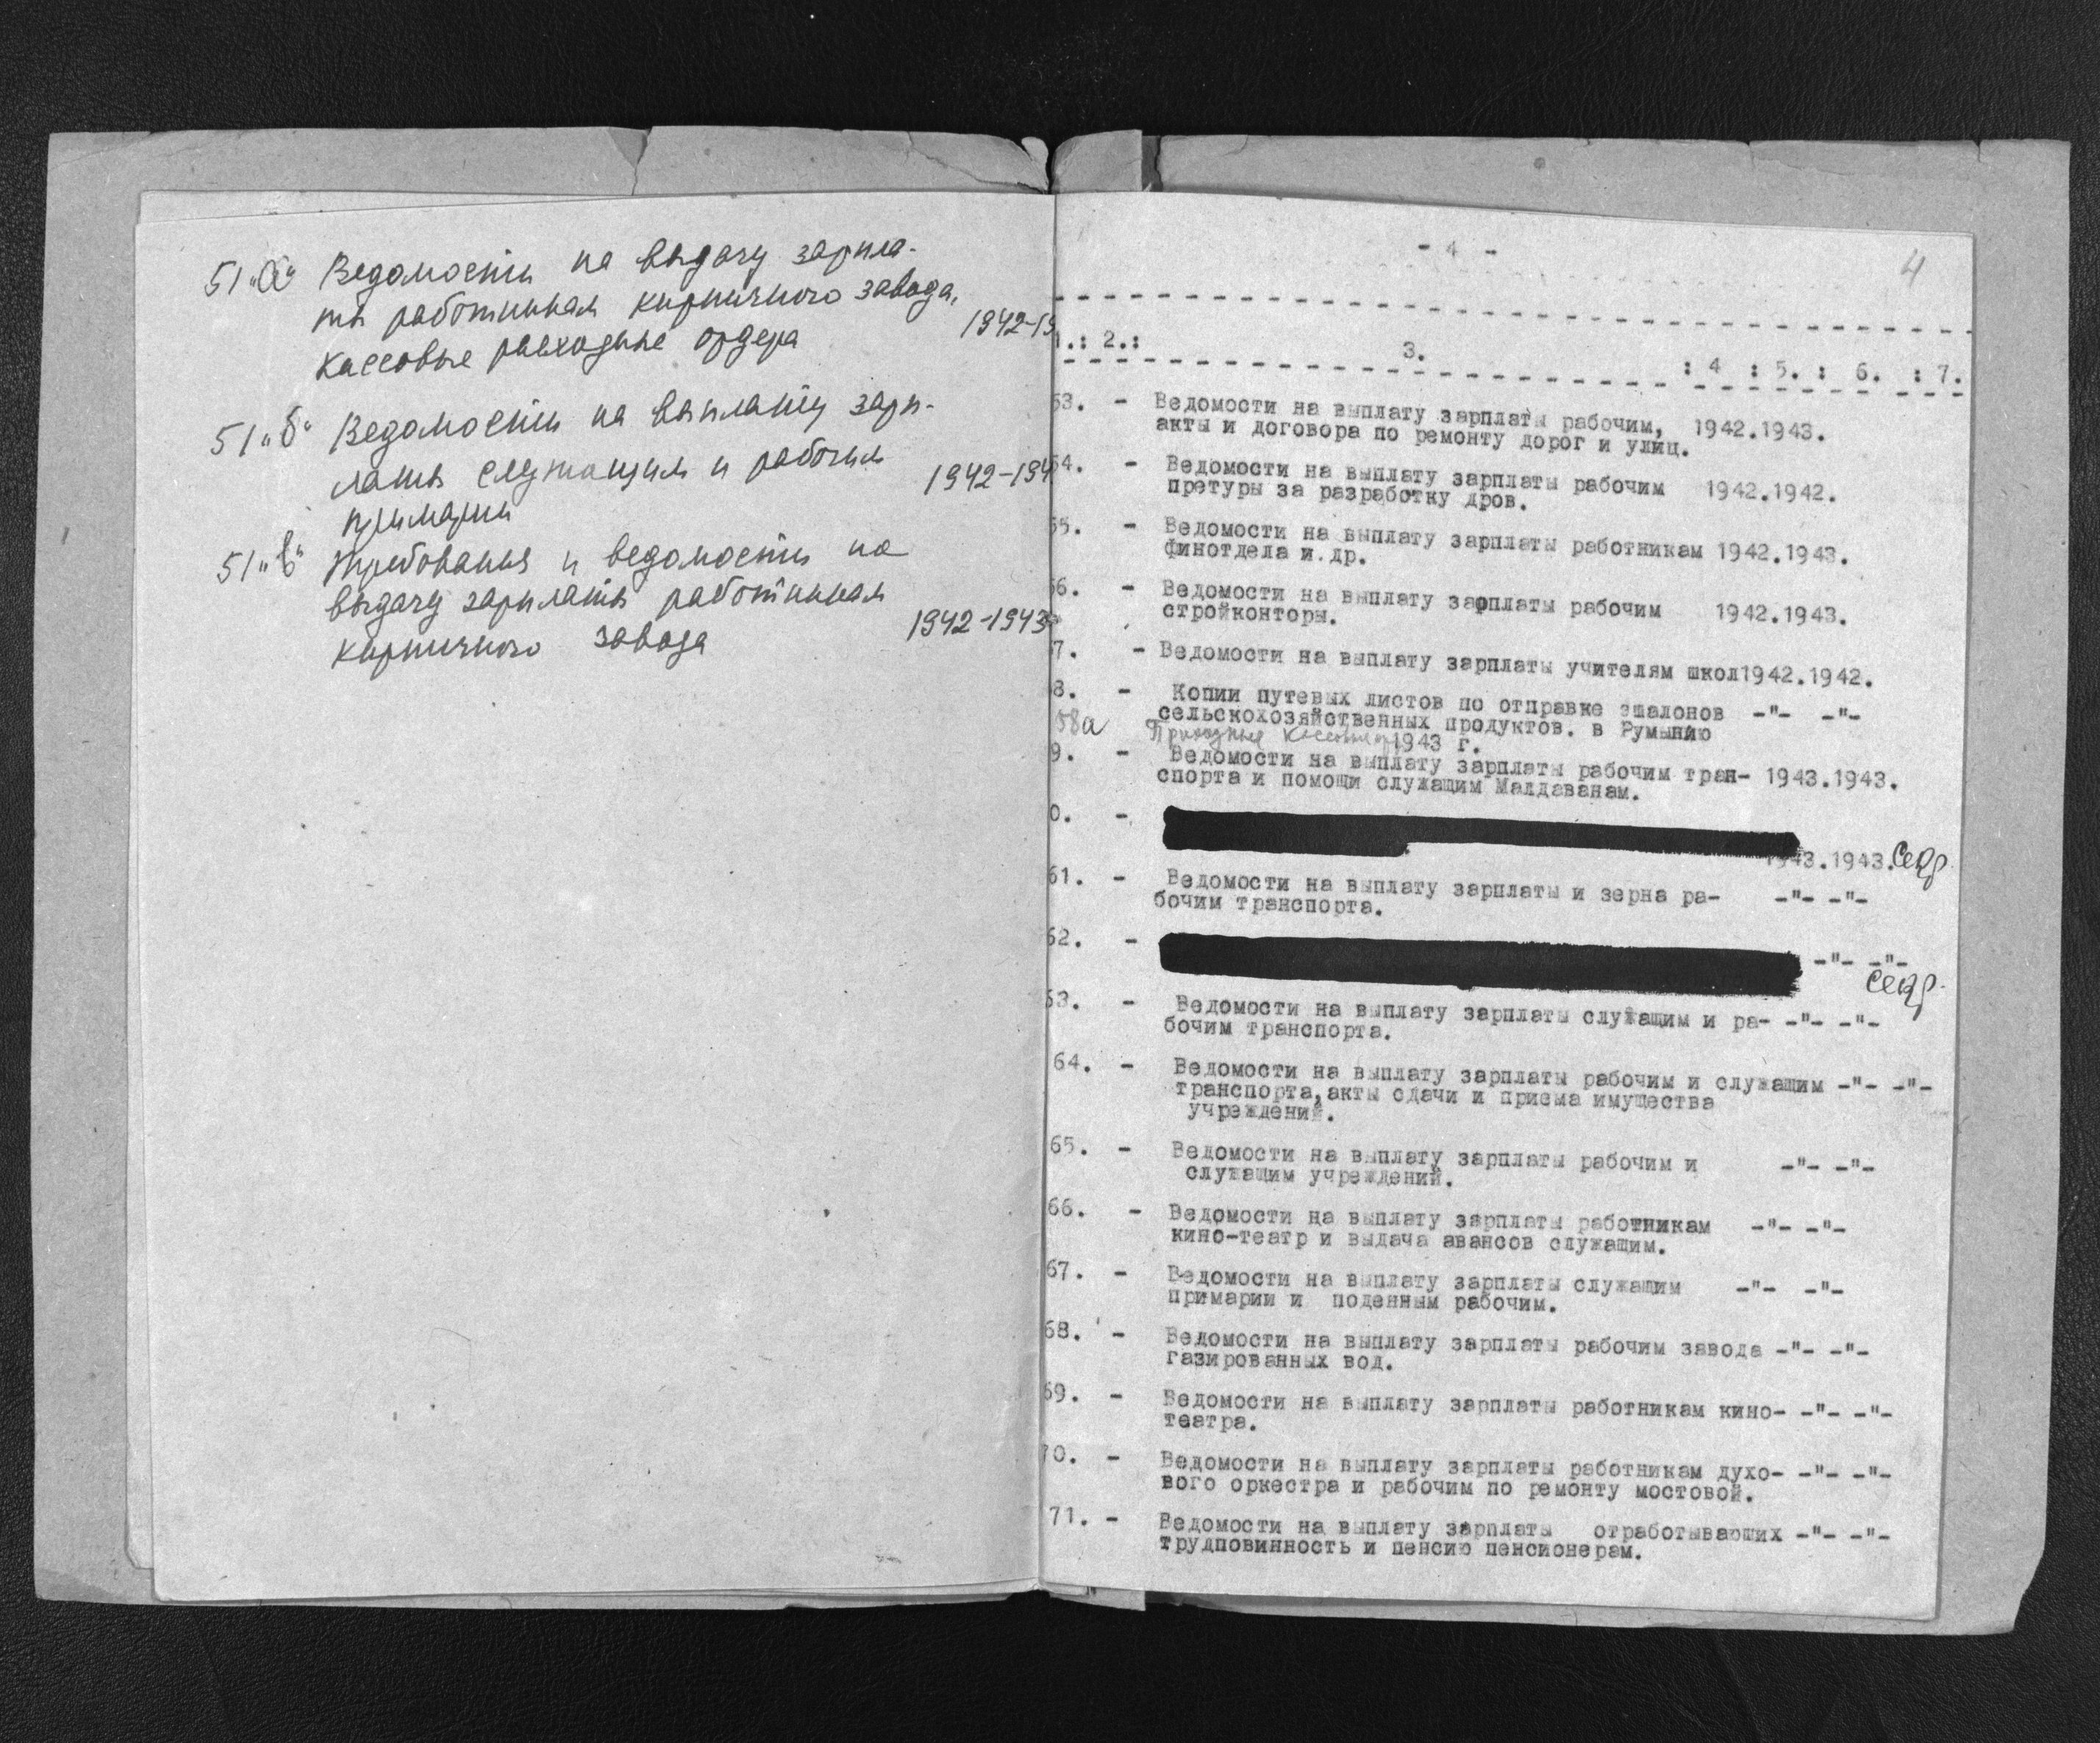 51 "а" Ведомости на выдачу зарпла-
ты работникам кирпичного завода,
кассовые расходные ордера 1942-19
51 "б" Ведомости на выплату зарп-
латы служащим и рабочим
примарии 1942-194
51 "в" Требования и ведомости на
выдачу зарплаты работникам
кирпичного завода 1942-1943
- 4 -
4
1.: 2.: 3. : 4 : 5. : 6. : 7.
53. - Ведомости на выплату зарплаты рабочим, 1942.1943.
акты и договора по ремонту дорог и улиц.
54. - Ведомости на выплату зарплаты рабочим 1942.1942.
претуры за разработку дров.
55. - Ведомости на выплату зарплаты работникам 1942.1943.
финотдела и.др.
56. - Ведомости на выплату зарплаты рабочим 1942.1943.
стройконторы.
7. - Ведомости на выплату зарплаты учителям школ1942.1942.
8. - Копии путевых листов по отправке эшалонов -"- -"-
сельскохозяйственных продуктов. в Румынию
58а Приходные кассовые 1943 г.
9. - Ведомости на выплату зарплаты рабочим тран- 1943.1943.
спорта и помощи служащим Малдаванам.
0. - 1943.1943. Секр.
61. - Ведомости на выплату зарплаты и зерна ра- -"- -"-
бочим транспорта.
62. - -"- -"-
секр.
63. - Ведомости на выплату зарплаты служащим и ра- -"- -"-
бочим транспорта.
64. - Ведомости на выплату зарплаты рабочим и служащим -"- -"-
транспорта,акты сдачи и приема имущества
учреждений.
65. - Ведомости на выплату зарплаты рабочим и -"- -"-
служащим учреждений.
66. - Ведомости на выплату зарплаты работникам -"- -"-
кино-театр и выдача авансов служащим.
67. - Ведомости на выплату зарплаты служащим -"- -"-
примарии и поденным рабочим.
68. - Ведомости на выплату зарплаты рабочим завода -"- -"-
газированных вод.
69. - Ведомости на выплату зарплаты работникам кино- -"- -"-
театра.
70. - Ведомости на выплату зарплаты работникам духо- -"- -"-
вого оркестра и рабочим по ремонту мостовой.
71. - Ведомости на выплату зарплаты отработывающих -"- -"-
трудповинность и пенсию пенсионерам.